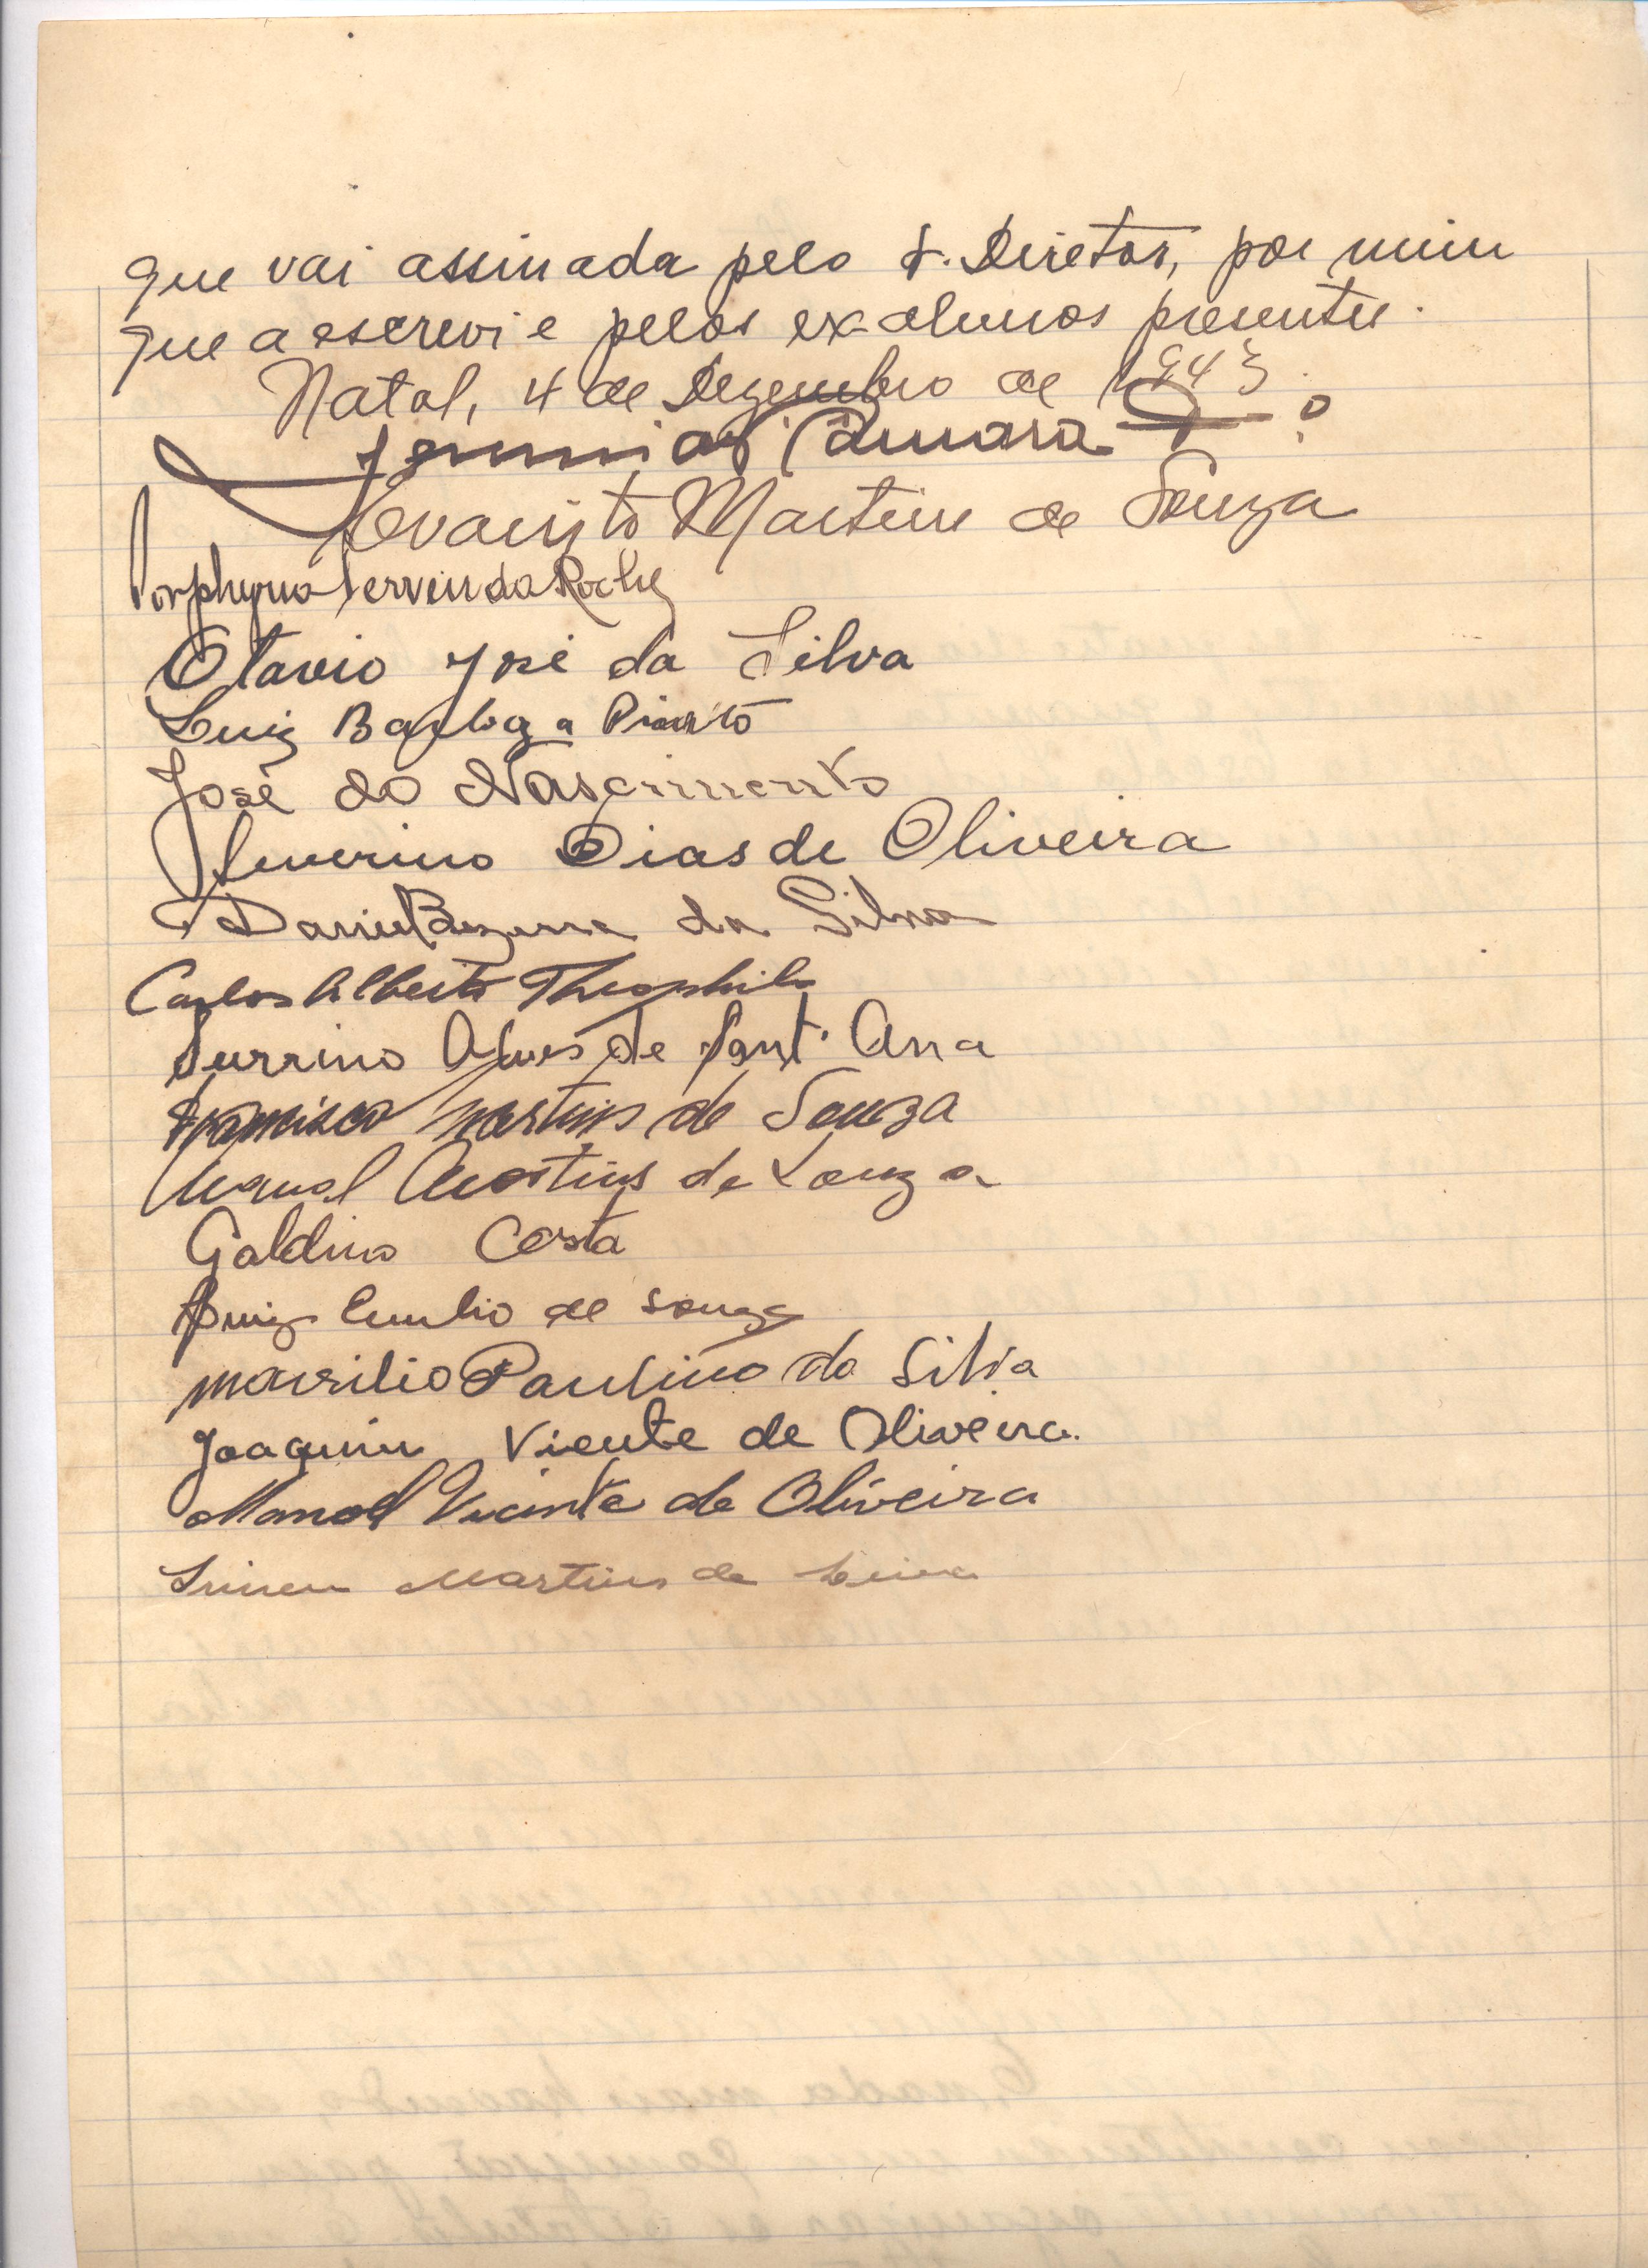 que vai assinada pelo S. Diretor, por mim
que a escrevi e pelos ex-alunos presentes.
Natal, 4 de Dezembro de 1943.
Câmara
Evaristo Martins de Souza
da Rocha
Otavio José da Silva
Luiz Barboza Pinto
José do Nascimento
Severino Dias de Oliveira
Daniel Bezerra da Silva
Carlos Alberto Theophilo
Severino Alves de Sant'Ana
Francisco Martins de Souza
Manoel Martins de Souza
Galdino Costa
Luiz Emilio de Souza
Marilio Paulino da Silva
Joaquim Vicente de Oliveira.
Manoel Vicente de Oliveira
Martins de